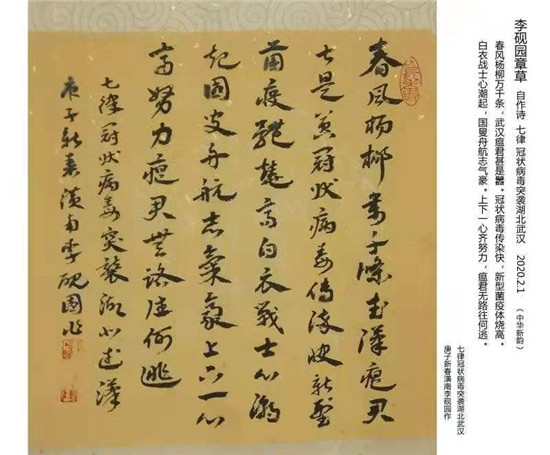 李砚园章草 自作诗 七律 冠状病毒突袭湖北武汉 2020.2.1 （中华新韵）
春风杨柳万千条，武汉瘟君甚是嚣。冠状病毒传染快，新型菌疫体烧高。
白衣战士心潮起，国叟舟航志气豪。上下一心齐努力，瘟君无路往何逃。
七律冠状病毒突袭湖北武汉
庚子新春潢南李砚园作
春風楊柳萬千條武漢瘟君
甚是嚣冠状病毒傳染快新型
菌疫體燒高白衣戰士心潮
起國叟舟航志氣豪上下一心
齊努力瘟君無路往何逃
七律冠状病毒突襲湖北武漢
庚子新春潢南李硯園作